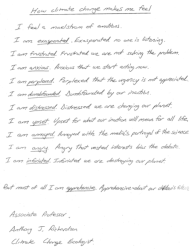 How climate change makes me feel
I feel a maelstrom of emotions.
I am exasperated. Exasperated no one is listening.
I am frustrated. Frustrated we are not solving the problem.
I am anxious. Anxious that we start acting now.
I am perplexed. Perplexed that the urgency is not appreciated.
I am dumbfounded. Dumbfounded by our inaction.
I am distressed. Distressed we are changing our planet.
I am upset. Upset for what our inaction will mean for all life.
I am annoyed. Annoyed with the media's portrayal of the science
I am angry. Angry that vested interests bias the debate.
I am infuriated. Infuriated we are destroying our planet.
But most of all I am apprehensive. Apprehensive about our children's
Associate Professor,
Anthony J. Richardson
Climate Change Ecologist